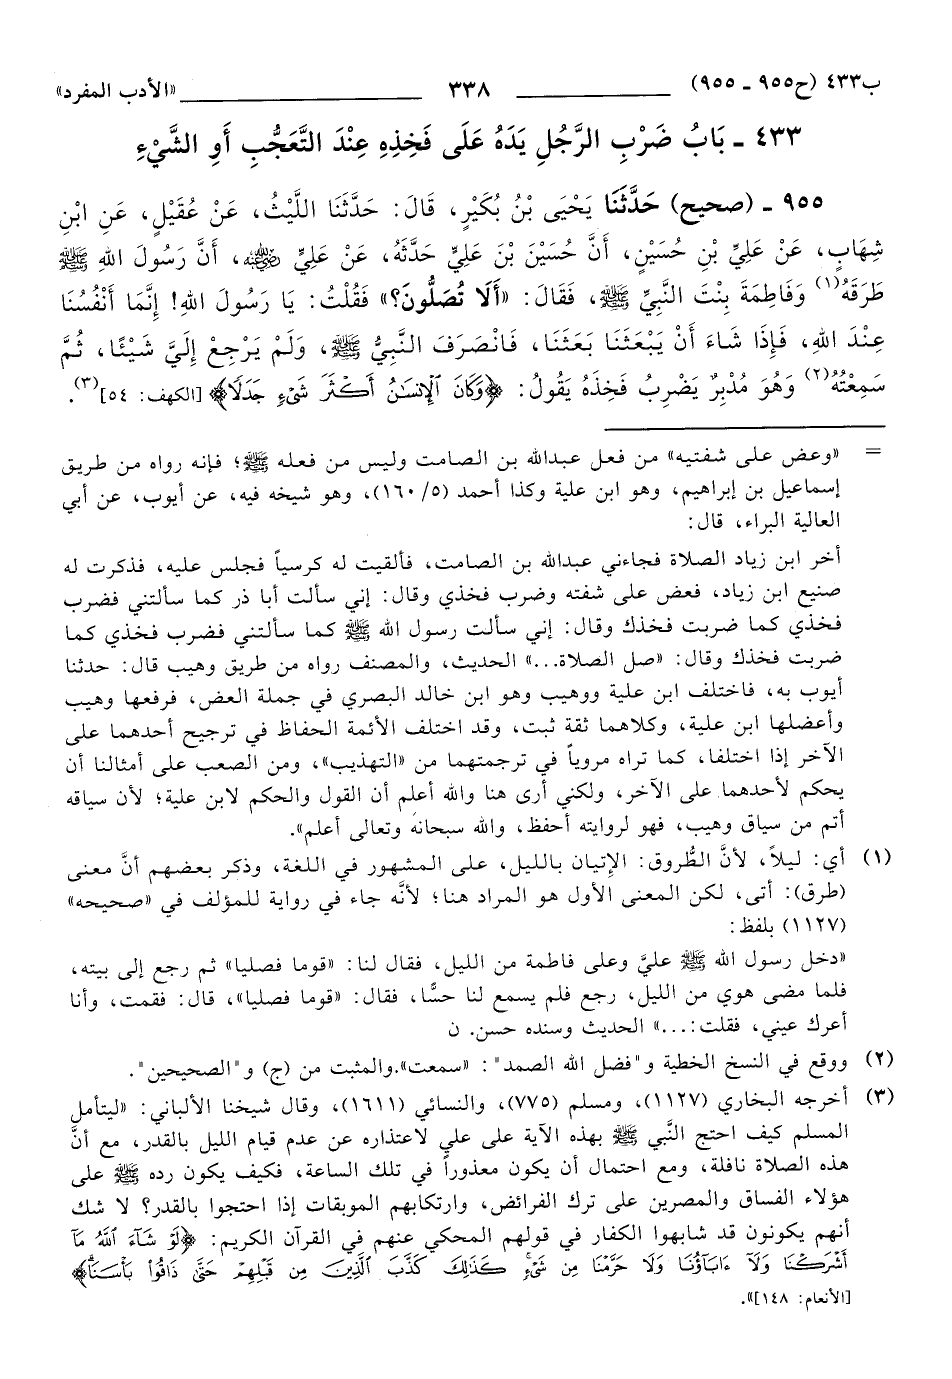 ب٤٣٣ (ح٩٥٥ ـ ٩٥٥) ٣٣٨ «الأدب المفرد»
٤٣٣ ـ بَابُ ضَرْبِ الرَّجُلِ يَدَهُ عَلَى فَخِذِهِ عِنْدَ التَّعَجُّبِ أَوِ الشَّيْءِ
٩٥٥ ـ (صحيح) حَدَّثَنَا يَحْيَى بْنُ بُكَيْرٍ، قَالَ: حَدَّثَنَا اللَّيْثُ، عَنْ عُقَيْلٍ، عَنِ ابْنِ
شِهَابٍ، عَنْ عَلِيِّ بْنِ حُسَيْنٍ، أَنَّ حُسَيْنَ بْنَ عَلِيٍّ حَدَّثَهُ، عَنْ عَلِيٍّ رضي الله عنه، أَنَّ رَسُولَ اللهِ ﷺ
طَرَقَهُ(١) وَفَاطِمَةَ بِنْتَ النَّبِيِّ ﷺ، فَقَالَ: «أَلَا تُصَلُّونَ؟» فَقُلْتُ: يا رَسُولَ اللهِ! إِنَّمَا أَنْفُسُنَا
عِنْدَ اللهِ، فَإِذَا شَاءَ أَنْ يَبْعَثَنَا بَعَثَنَا، فَانْصَرَفَ النَّبِيُّ ﷺ، وَلَمْ يَرْجِعْ إِلَيَّ شَيْئًا، ثُمَّ
سَمِعْتُهُ(٢) وَهُوَ مُدْبِرٌ يَضْرِبُ فَخِذَهُ يَقُولُ: ﴿وَكَانَ ٱلْإِنسَٰنُ أَكْثَرَ شَىْءٍ جَدَلًا﴾ [الكهف: ٥٤](٣).
= «وعض على شفتيه» من فعل عبدالله بن الصامت وليس من فعله ﷺ؛ فإنه رواه من طريق
إسماعيل بن إبراهيم، وهو ابن علية وكذا أحمد (٥/ ١٦٠)، وهو شيخه فيه، عن أيوب، عن أبي
العالية البراء، قال:
أخر ابن زياد الصلاة فجاءني عبدالله بن الصامت، فألقيت له كرسياً فجلس عليه، فذكرت له
صنيع ابن زياد، فعض على شفته وضرب فخذي وقال: إني سألت أبا ذر كما سألتني فضرب
فخذي كما ضربت فخذك وقال: إني سألت رسول الله ﷺ كما سألتني فضرب فخذي كما
ضربت فخذك وقال: «صل الصلاة...» الحديث، والمصنف رواه من طريق وهيب قال: حدثنا
أيوب به، فاختلف ابن علية ووهيب وهو ابن خالد البصري في جملة العض، فرفعها وهيب
وأعضلها ابن علية، وكلاهما ثقة ثبت، وقد اختلف الأئمة الحفاظ في ترجيح أحدهما على
الآخر إذا اختلفا، كما تراه مروياً في ترجمتهما من «التهذيب»، ومن الصعب على أمثالنا أن
يحكم لأحدهما على الآخر، ولكني أرى هنا والله أعلم أن القول والحكم لابن علية؛ لأن سياقه
أتم من سياق وهيب، فهو لروايته أحفظ، والله سبحانه وتعالى أعلم».
(١) أي: ليلاً، لأنَّ الطُّروق: الإتيان بالليل، على المشهور في اللغة، وذكر بعضهم أنَّ معنى
(طرق): أتى، لكن المعنى الأول هو المراد هنا؛ لأنَّه جاء في رواية للمؤلف في «صحيحه»
(١١٢٧) بلفظ:
«دخل رسول الله ﷺ عليَّ وعلى فاطمة من الليل، فقال لنا: «قوما فصليا» ثم رجع إلى بيته،
فلما مضى هوي من الليل، رجع فلم يسمع لنا حسًّا، فقال: «قوما فصليا»، قال: فقمت، وأنا
أعرك عيني، فقلت:...» الحديث وسنده حسن. ن
(٢) ووقع في النسخ الخطية و"فضل الله الصمد": «سمعت».والمثبت من (ج) و"الصحيحين".
(٣) أخرجه البخاري (١١٢٧)، ومسلم (٧٧٥)، والنسائي (١٦١١)، وقال شيخنا الألباني: «ليتأمل
المسلم كيف احتج النَّبي ﷺ بهذه الآية على علي لاعتذاره عن عدم قيام الليل بالقدر، مع أنَّ
هذه الصلاة نافلة، ومع احتمال أن يكون معذوراً في تلك الساعة، فكيف يكون رده ﷺ على
هؤلاء الفساق والمصرين على ترك الفرائض، وارتكابهم الموبقات إذا احتجوا بالقدر؟ لا شك
أنهم يكونون قد شابهوا الكفار في قولهم المحكي عنهم في القرآن الكريم: ﴿لَوْ شَآءَ ٱللَّهُ مَآ
أَشْرَكْنَا وَلَآ ءَابَآؤُنَا وَلَا حَرَّمْنَا مِن شَىْءٍ كَذَٰلِكَ كَذَّبَ ٱلَّذِينَ مِن قَبْلِهِمْ حَتَّىٰ ذَاقُوا۟ بَأْسَنَا﴾
[الأنعام: ١٤٨]».